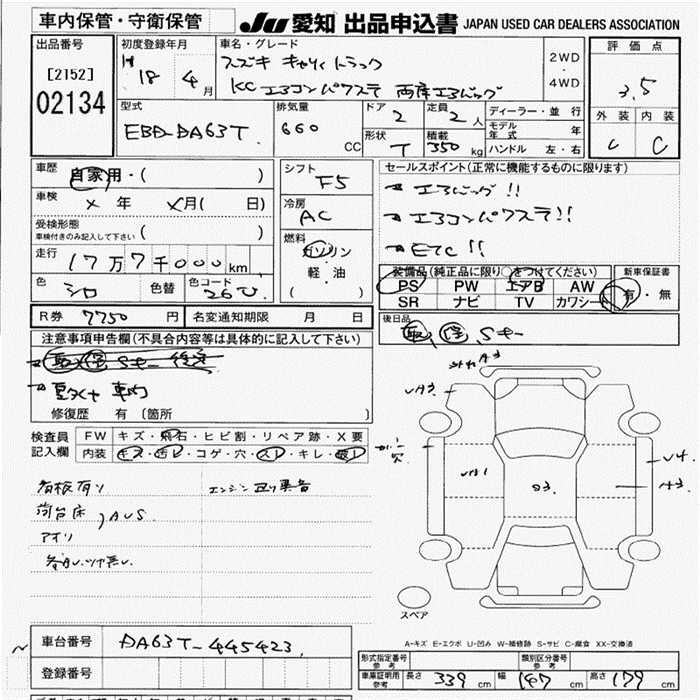 車内保管・守衛保管
JU 愛知 出品申込書 JAPAN USED CAR DEALERS ASSOCIATION
出品番号
[2152]
02134
初度登録年月
H 18 年 4 月
車名・グレード
スズキ キャリィ トラック
KC エアコン パワステ 両席エアバッグ
2WD
・
4WD
評価点
3.5
外装 内装
C C
型式
EBD-DA63T
排気量
660 CC
ドア 2
定員 2 人
形状 T
積載 350 kg
ディーラー・並行
モデル年式 年
ハンドル 左・右
車歴
自家用・( )
車検 × 年 × 月( 日)
受検形態
車検付きのみ記入して下さい
走行 17万7千000 km
色 シロ 色替 色コード 26U
シフト
F5
冷房
AC
燃料
ガソリン
軽・油
( )
セールスポイント(正常に機能するものに限ります)
エアバッグ!!
エアコン パワステ!!
ETC!!
装備品(純正品に限り○をつけてください)
PS PW エアB AW
SR ナビ TV カワシート
新車保証書
有・無
R券 7750 円 名変通知期限 月 日
後日品
取 保 Sキー
注意事項申告欄(不具合内容等は具体的に記入して下さい)
車内
修復歴 有 〔箇所 〕
検査員
記入欄
FW キズ・飛石・ヒビ割・リペア跡・X要
内装 キズ・汚レ・コゲ・穴・スレ・キレ・破レ
荷台床
アオリ
AUS
エンジン
A3
A3
U4
A3
穴
スペア
A-キズ E-エクボ U-凹み W-補修跡 S-サビ C-腐食 XX-交換済
車台番号 DA63T-445423
登録番号
形式指定番号 参考
類別区分番号 参考
車庫証明用 参考 長さ 339 cm 幅 147 cm 高さ 179 cm